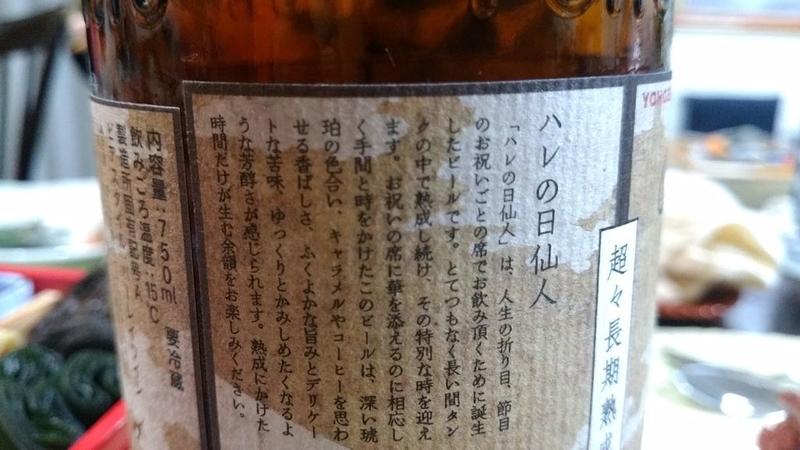 YOHO
超々長期熟成
ハレの日仙人
「ハレの日仙人」は、人生の折り目、節目
のお祝いごとの席でお飲み頂くために誕生
したビールです。とてつもなく長い間タン
クの中で熟成し続け、その特別な時を迎え
ます。お祝いの席に華を添えるのに相応し
く手間と時をかけたこのビールは、深い琥
珀の色合い、キャラメルやコーヒーを思わ
せる香ばしさ、ふくよかな旨みとデリケー
トな苦味、ゆっくりとかみしめたくなるよ
うな芳醇さが感じられます。熟成にかけた
時間だけが生む余韻をお楽しみください。
要冷蔵
内容量：750ml
飲みごろ温度：15℃
製造所固有記号：A
ビアスタイル：バーレイワイン